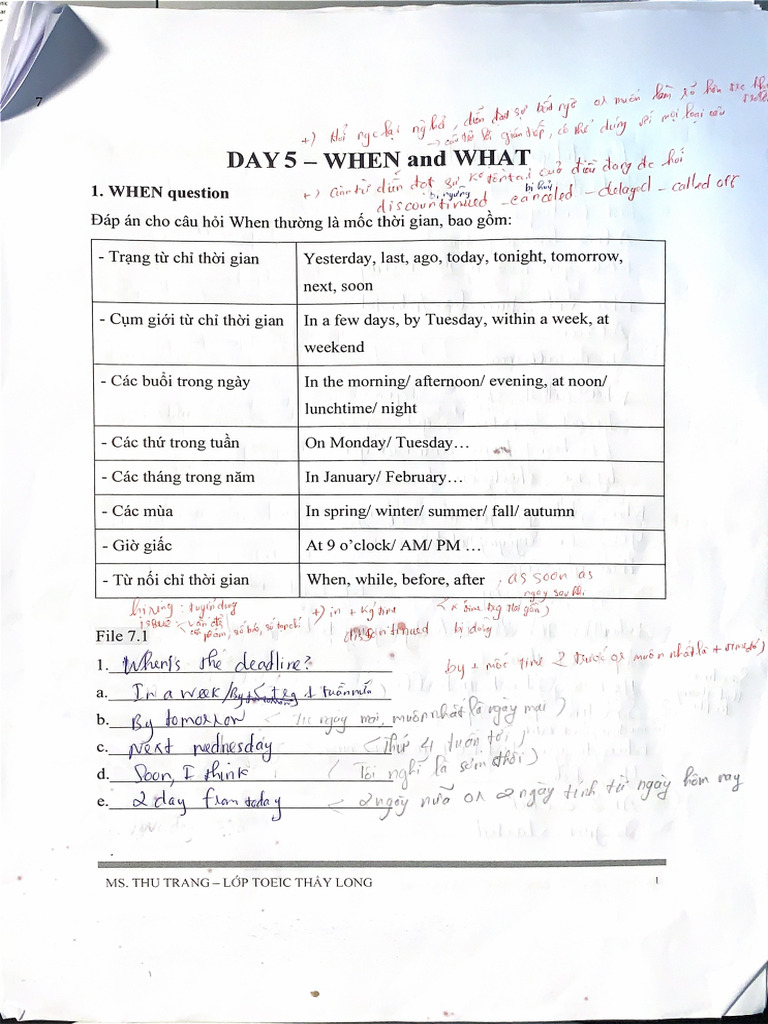 7
+) khi ngclại ng bỏ, diễn đạt sự bất ngờ or muốn làm rõ hơn
→ câu trả lời gián tiếp, có thể dùng vs mọi loại câu
DAY 5 – WHEN and WHAT
1. WHEN question
+) Cụm từ diễn đạt sự ko tồn tại của điều đang đc hỏi
bị ngừng bị huỷ
discountinued – canceled – delayed – called off
Đáp án cho câu hỏi When thường là mốc thời gian, bao gồm:
- Trạng từ chỉ thời gian Yesterday, last, ago, today, tonight, tomorrow,
next, soon
- Cụm giới từ chỉ thời gian In a few days, by Tuesday, within a week, at
weekend
- Các buổi trong ngày In the morning/ afternoon/ evening, at noon/
lunchtime/ night
- Các thứ trong tuần On Monday/ Tuesday…
- Các tháng trong năm In January/ February…
- Các mùa In spring/ winter/ summer/ fall/ autumn
- Giờ giấc At 9 o’clock/ AM/ PM …
- Từ nối chỉ thời gian When, while, before, after , as soon as
ngay sau khi
hiring : tuyển dụng +) in + kg time
issue : vấn đề
số báo, số tạp chí
File 7.1
by + mốc time
1. When's the deadline?
a. In a week/ By
b. By tomorrow (Từ ngày mai, muộn nhất là ngày mai)
c. Next wednesday (Thứ 4 tuần tới)
d. Soon, I think (Tôi nghĩ là sớm thôi)
e. 2 day from today 2 ngày nữa or 2 ngày tính từ ngày hôm nay
MS. THU TRANG – LỚP TOEIC THẦY LONG 1